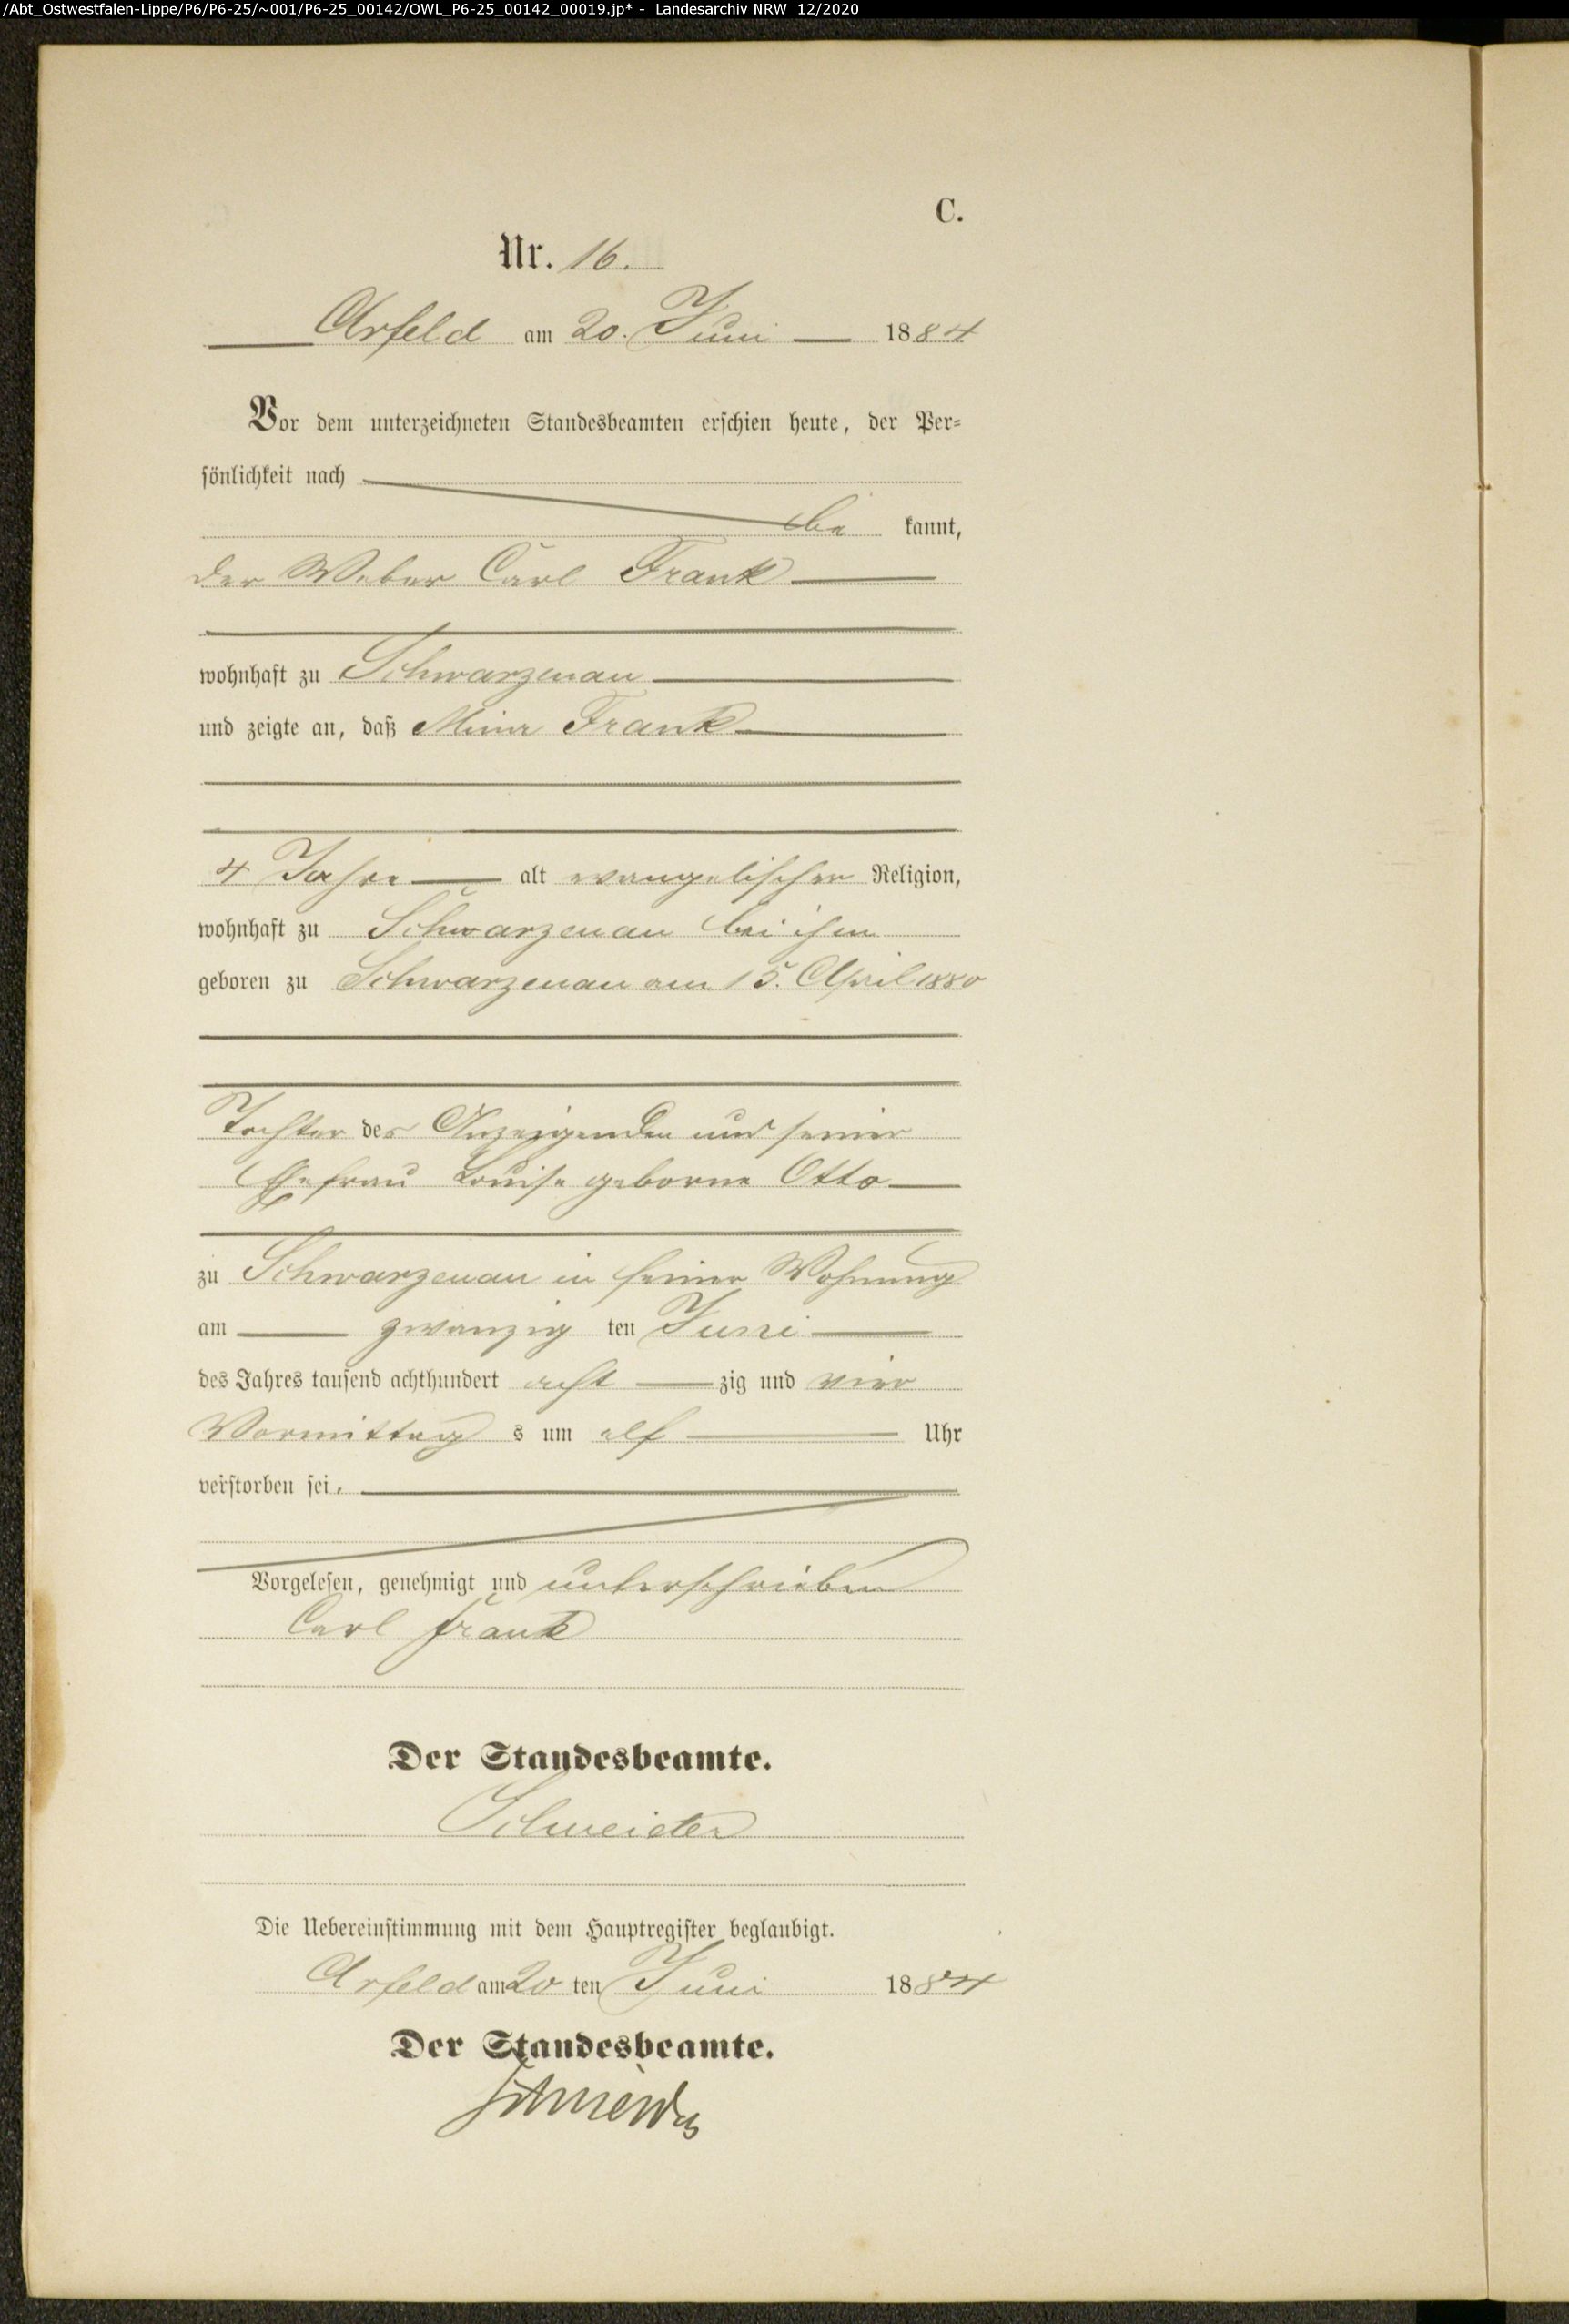 /Abt_Ostwestfalen-Lippe/P6/P6-25/~001/P6-25_00142/OWL_P6-25_00142_00019.jp* - Landesarchiv NRW 12/2020
C.
Nr. 16.
Arfeld am 20. Juni 1884
Vor dem unterzeichneten Standesbeamten erschien heute, der Per-
sönlichkeit nach
be kannt,
der Weber Carl Frank
wohnhaft zu Schwarzenau
und zeigte an, daß Mina Frank
4 Jahre alt evangelischer Religion,
wohnhaft zu Schwarzenau bei ihm
geboren zu Schwarzenau am 15. April 1880
Tochter des Anzeigenden und seiner
Ehefrau Louise geborne Otto
zu Schwarzenau in seiner Wohnung
am zwanzig ten Juni
des Jahres tausend achthundert acht zig und vier
Vormittag s um elf Uhr
verstorben sei.
Vorgelesen, genehmigt und unterschrieben
Carl Frank
Der Standesbeamte.
Schneider
Die Uebereinstimmung mit dem Hauptregister beglaubigt.
Arfeld am 20 ten Juni 1884
Der Standesbeamte.
Schneider